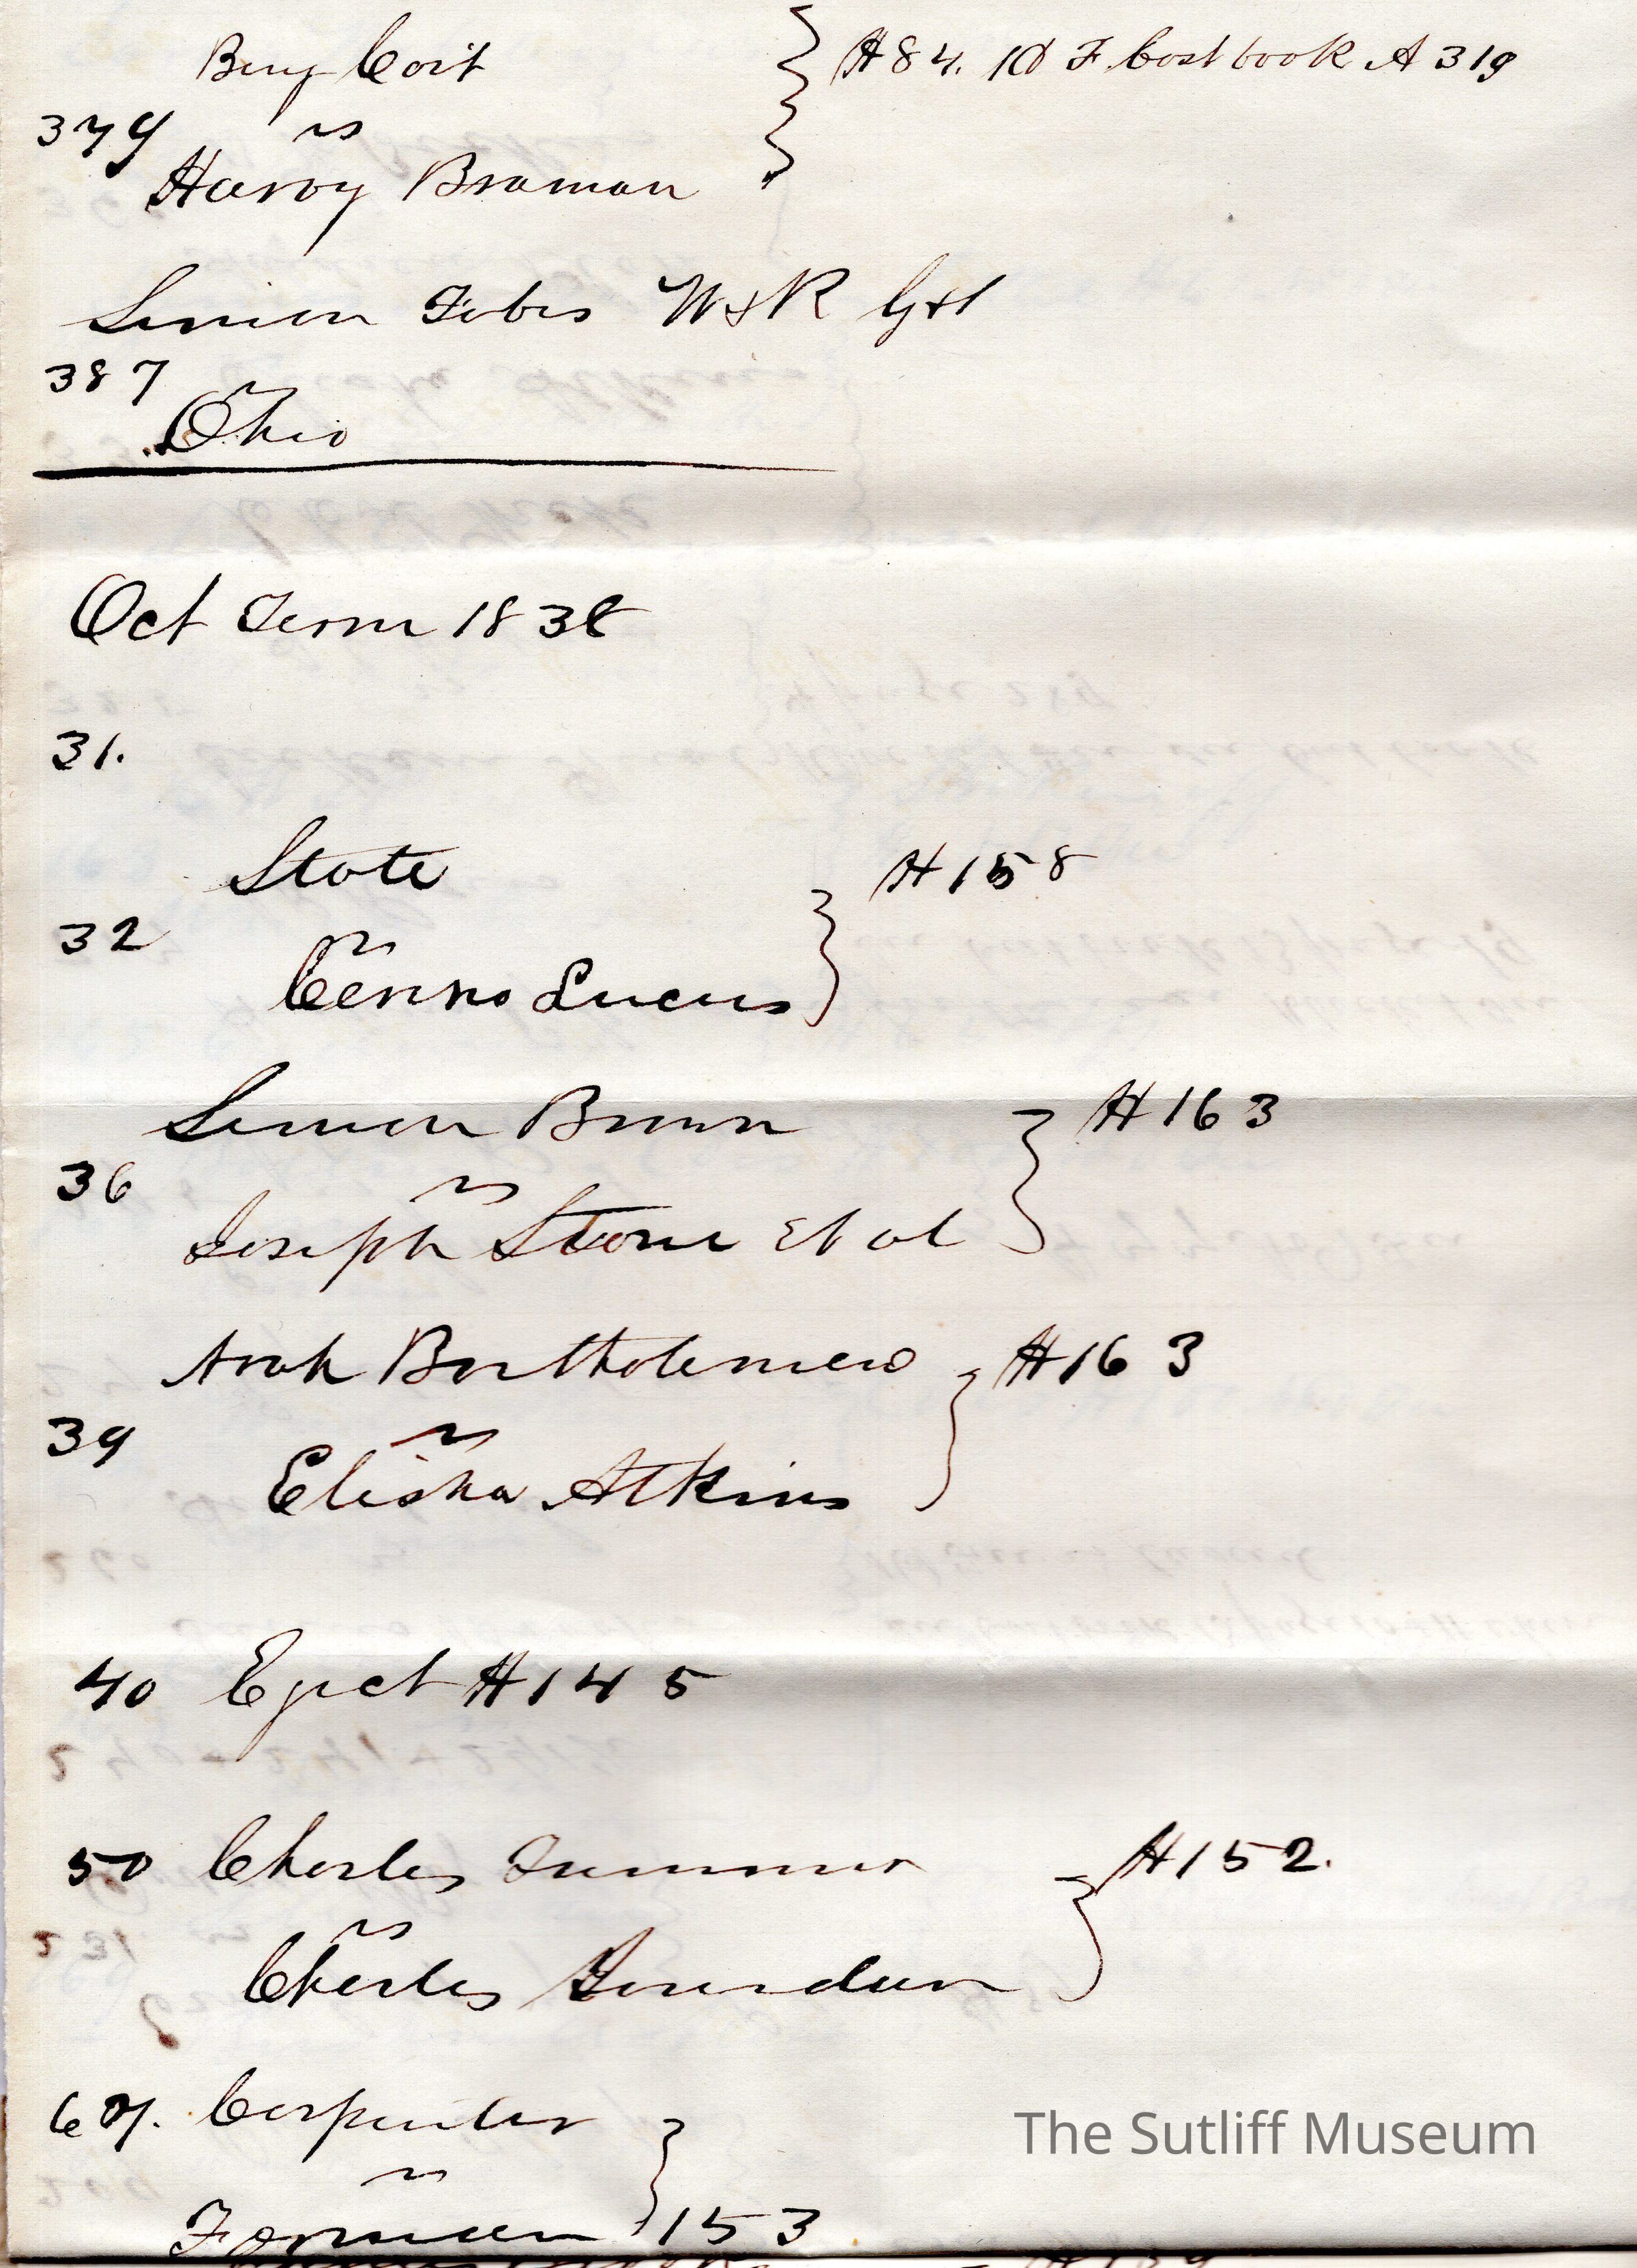 Benj Coit H 84. 10 F Cost book A 319
379 vs
Harvy Braman
Simon Fobes W&R
387 vs
Ohio
Oct Term 1838
31.
State H 158
32 vs
Lucus
Simon Brown H 163
36 vs
Joseph Stone Et al
Arah Bartholemew H 163
39 vs
Elisha Atkins
40 Eject H 145
50 Charles H 152.
vs
Charles
67. Carpenter
vs
Forman 153
The Sutliff Museum